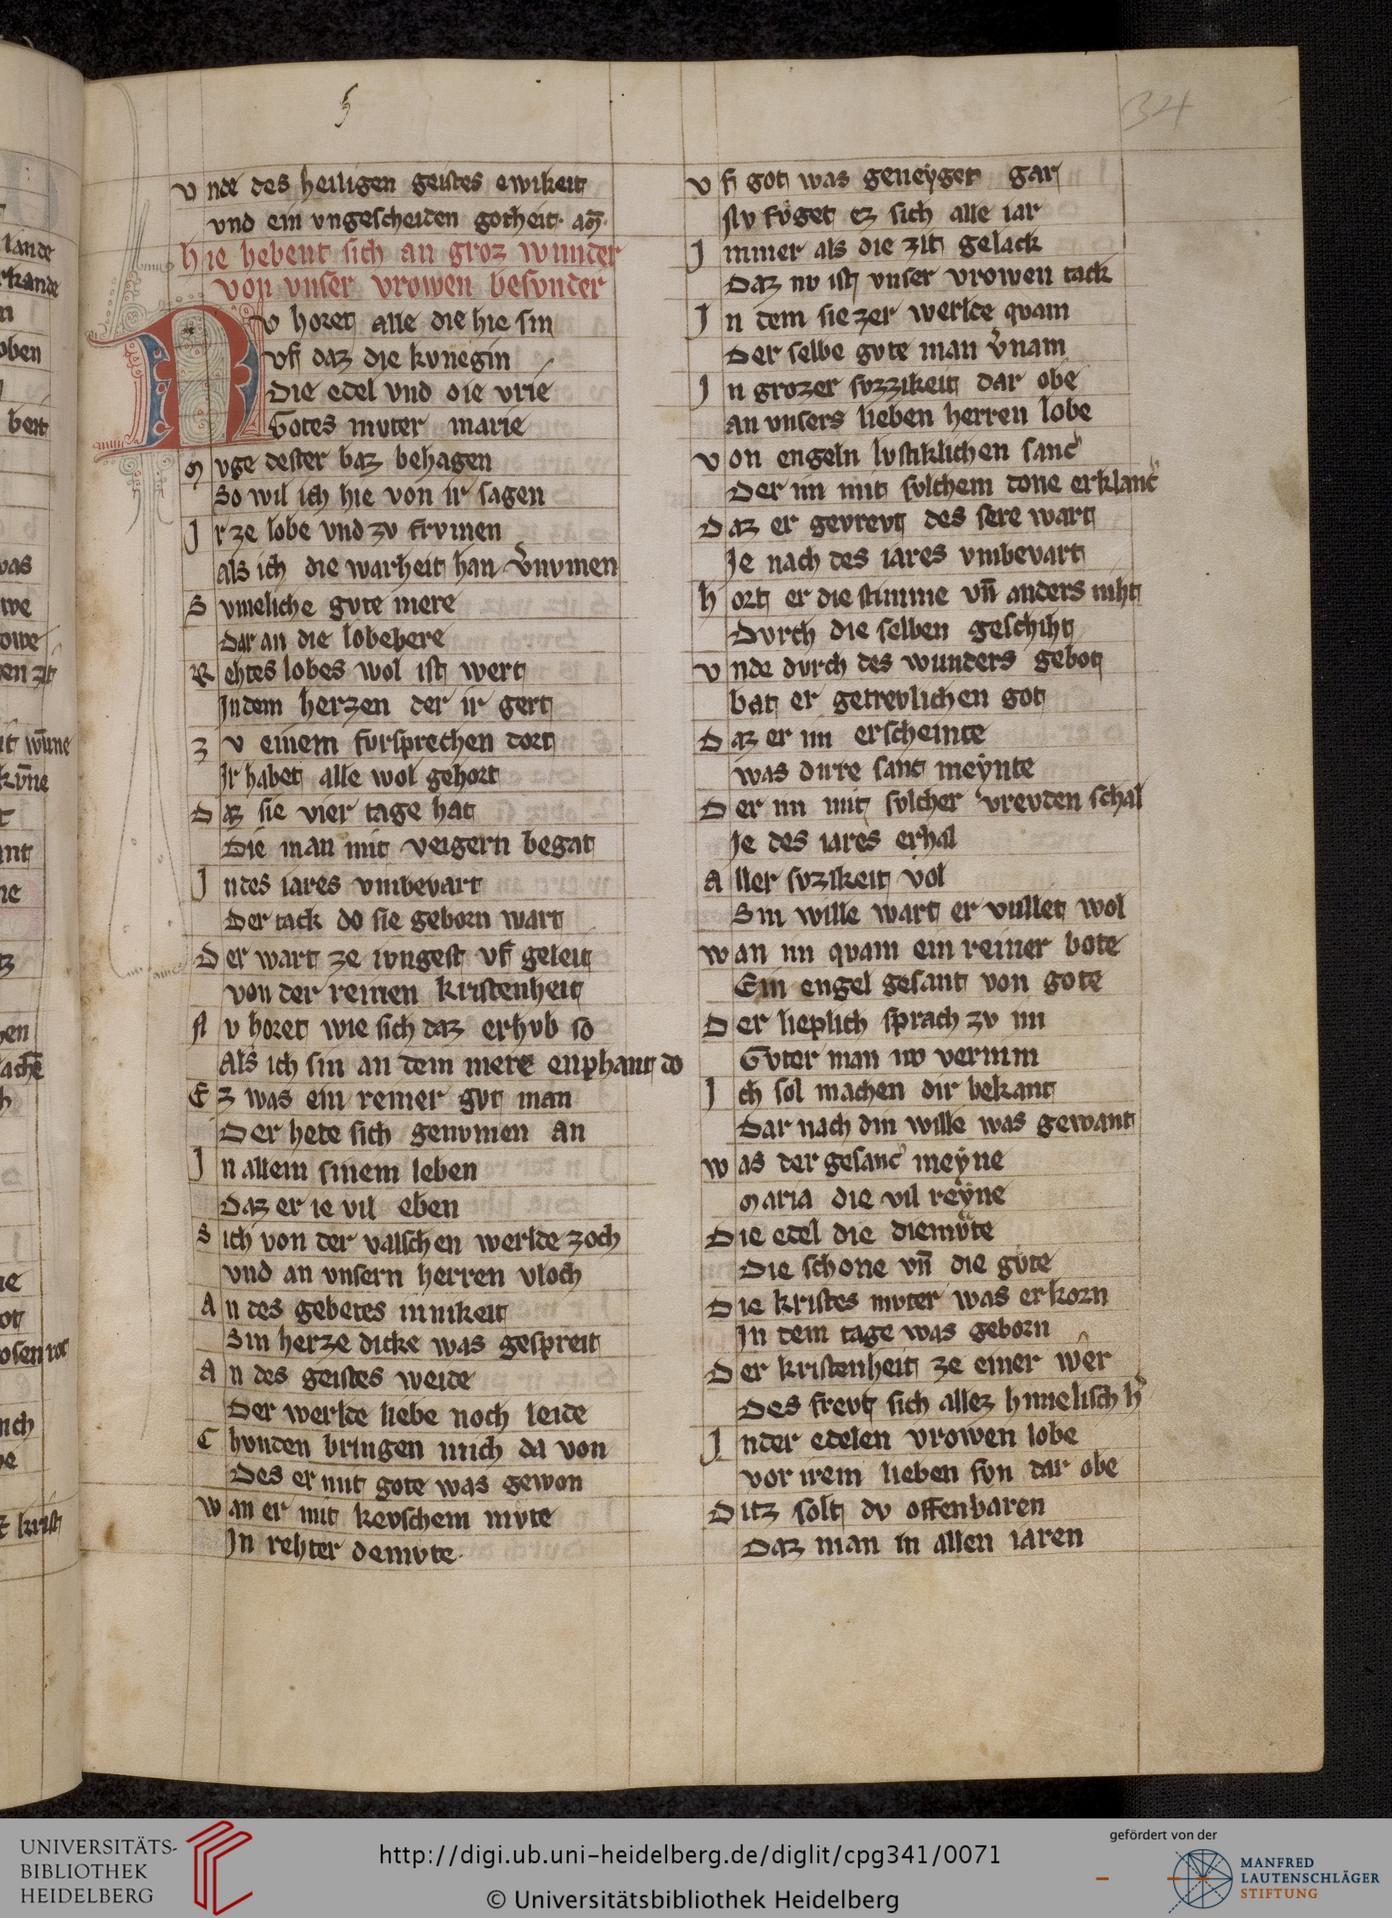 5
34
vnde des heiligen geistes ewikeit
vnd ein vngescheiden gotheit· am̄·
hie hebent sich an groz wunder
von vnser vrowen besvnder
Nv horet alle die hie sin
vf daz die kvnegin
Die edel vnd die vrie
Gotes mvter marie
Mvge dester baz behagen
So wil ich hie von ir sagen
Ir ze lobe vnd zv frvmen
Als ich die warheit han v̓nvmen
Svmeliche gvte mere
Dar an die lobebere
Rehtes lobes wol ist wert
In dem herzen der ir gert
Zv einem fvrsprechen dort
Ir habet alle wol gehort
Daz sie vier tage hat
Die man mit veigern begat
In des iares vmbevart
Der tack do sie geborn wart
Der wart ze ivngest vf geleit
von der reinen kristenheit
Nv horet wie sich daz erhvb so
Als ich sin an dem mere enphant do
Ez was ein reiner gvt man
Der hete sich genvmen an
In allem sinem leben
Daz er ie vil eben
Sich von der valschen werlde zoch
vnd an vnsern herren vloch
An des gebetes innikeit
Sin herze dicke was gespreit
An des geistes weide
Der werlde liebe noch leide
Chvnden bringen mich da von
Des er mit gote was gewon
wan er mit kevschem mvte
In rehter demvte·
vf got was geneyget gar
Nv fvget ez sich alle iar
Immer als die zit gelack
Daz nv ist vnser vrowen tack
In dem sie zer werlde quam
Der selbe gvte man v̓nam
In grozer svzzikeit dar obe
an vnsers lieben herren lobe
von engeln lvstiklichen sanc
Der im mit svlchem done erklanc
Daz er gevrevt des sere wart
Ie nach des iares vmbevart
hort er die stimme vn̄ anders niht
Dvrch die selben geschiht
vnde dvrch des wunders gebot
bat er getrevlichen got
Daz er im erscheinte
was dirre sanc meynte
Der im mit svlcher vrevden schal
Ie des iares erhal
Aller svzikeit vol
Sin wille wart er vullet wol
wan im quam ein reiner bote
Ein engel gesant von gote
Der lieplich sprach zv im
Gvter man nv vernim
Ich sol machen dir bekant
Dar nach din wille was gewant
was der gesanc meyne
Maria die vil reyne
Die edel die diemvte
Die schone vn̄ die gvte
Die kristes mvter was erkorn
In dem tage was geborn
Der kristenheit ze einer wer
Des frevt sich allez himelisch h̓
In der edelen vrowen lobe
vor irem lieben svn dar obe
Ditz solt dv offenbaren
Daz man in allen iaren
UNIVERSITÄTS-
BIBLIOTHEK
HEIDELBERG
http://digi.ub.uni-heidelberg.de/diglit/cpg341/0071
© Universitätsbibliothek Heidelberg
gefördert von der
MANFRED
LAUTENSCHLÄGER
STIFTUNG